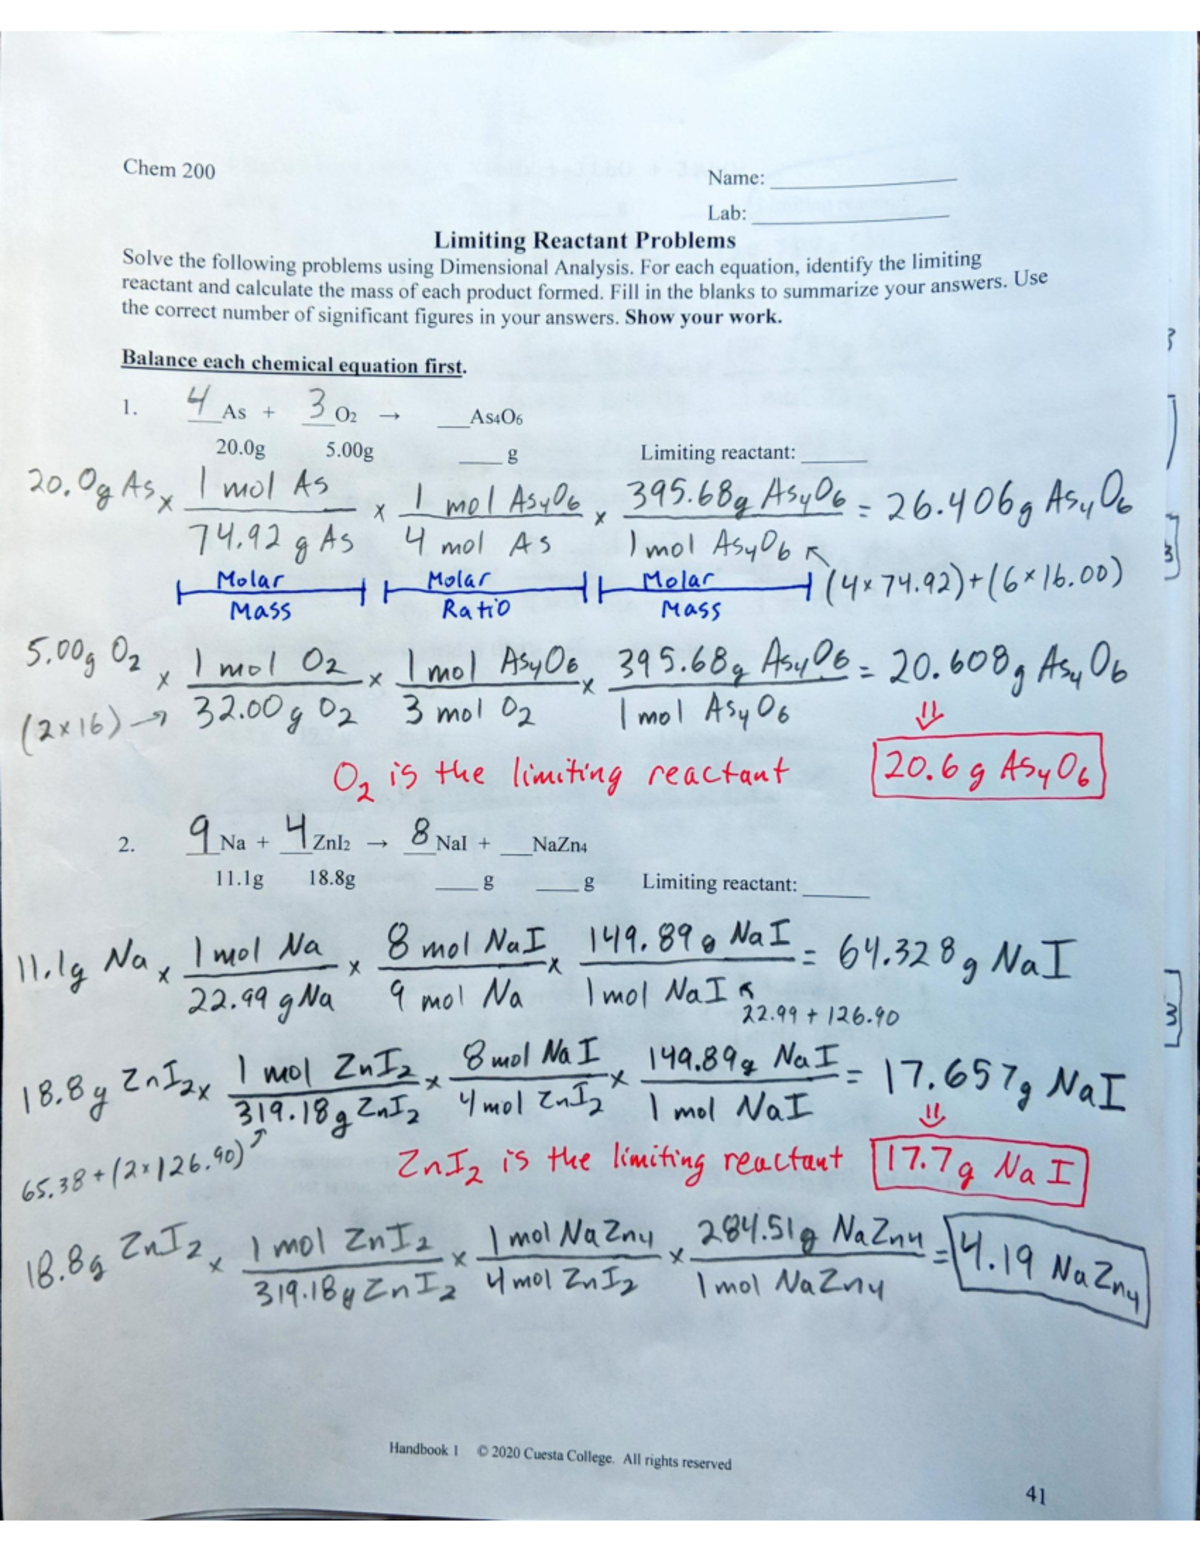 Chem 200
Name: ____________
Lab: ____________
Limiting Reactant Problems
Solve the following problems using Dimensional Analysis. For each equation, identify the limiting
reactant and calculate the mass of each product formed. Fill in the blanks to summarize your answers. Use
the correct number of significant figures in your answers. Show your work.
Balance each chemical equation first.
1. 4 As + 3 O2 → ___As4O6
20.0g 5.00g ____ g Limiting reactant: ______
20.0g As x 1 mol As / 74.92 g As x 1 mol As4O6 / 4 mol As x 395.68g As4O6 / 1 mol As4O6 = 26.406g As4O6
Molar Mass Molar Ratio Molar Mass (4x74.92)+(6x16.00)
5.00g O2 x 1 mol O2 / 32.00g O2 x 1 mol As4O6 / 3 mol O2 x 395.68g As4O6 / 1 mol As4O6 = 20.608g As4O6
(2x16) → ⇓
O2 is the limiting reactant 20.6 g As4O6
2. 9 Na + 4 ZnI2 → 8 NaI + ___NaZn4
11.1g 18.8g ____ g ____ g Limiting reactant: ______
11.1g Na x 1 mol Na / 22.99 g Na x 8 mol NaI / 9 mol Na x 149.89g NaI / 1 mol NaI = 64.328g NaI
22.99 + 126.90
18.8g ZnI2 x 1 mol ZnI2 / 319.18g ZnI2 x 8 mol NaI / 4 mol ZnI2 x 149.89g NaI / 1 mol NaI = 17.657g NaI
65.38+(2x126.90) ⇓
ZnI2 is the limiting reactant 17.7g NaI
18.8g ZnI2 x 1 mol ZnI2 / 319.18g ZnI2 x 1 mol NaZn4 / 4 mol ZnI2 x 284.51g NaZn4 / 1 mol NaZn4 = 4.19 NaZn4
Handbook 1 © 2020 Cuesta College. All rights reserved
41